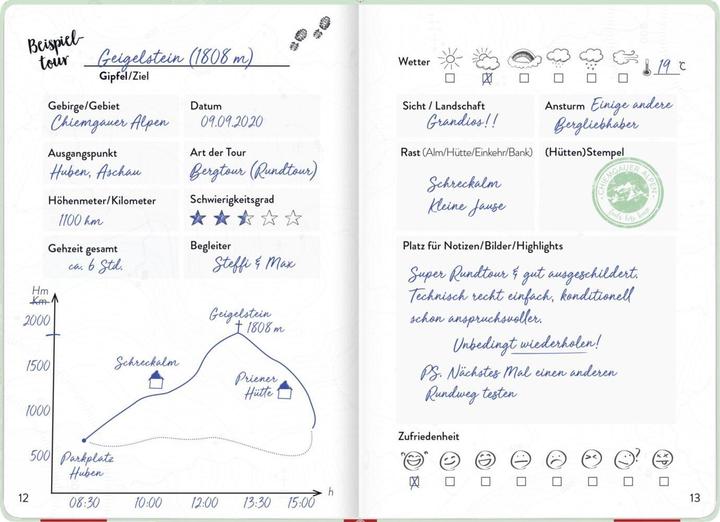 Beispiel-
tour
Geigelstein (1808 m)
Gipfel/Ziel
Gebirge/Gebiet
Chiemgauer Alpen
Datum
09.09.2020
Ausgangspunkt
Huben, Aschau
Art der Tour
Bergtour (Rundtour)
Höhenmeter/Kilometer
1100 hm
Schwierigkeitsgrad
Gehzeit gesamt
ca. 6 Std.
Begleiter
Steffi & Max
Hm
Km
2000
1500
1000
500
Geigelstein
1808 m
Schreckalm
Priener
Hütte
Parkplatz
Huben
08:30 10:00 12:00 13:30 15:00 h
12
Wetter
19 °C
Sicht / Landschaft
Grandios!!
Ansturm Einige andere
Bergliebhaber
Rast (Alm/Hütte/Einkehr/Bank)
Schreckalm
Kleine Jause
(Hütten)Stempel
CHIEMGAUER ALPEN
Platz für Notizen/Bilder/Highlights
Super Rundtour & gut ausgeschildert.
Technisch recht einfach, konditionell
schon anspruchsvoller.
Unbedingt wiederholen!
PS. Nächstes Mal einen anderen
Rundweg testen
Zufriedenheit
13